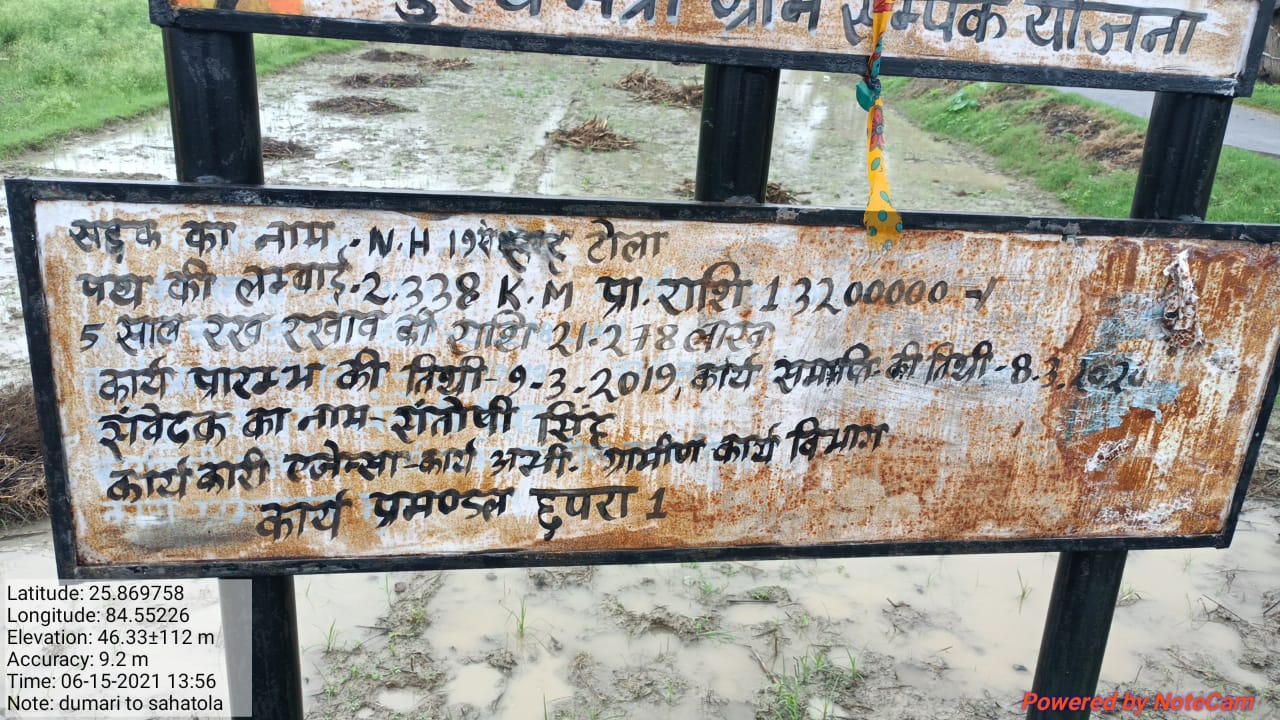 मुख्यमंत्री ग्राम सम्पर्क योजना
सड़क का नाम - N.H 19 टोला
पथ की लम्बाई - 2.338 K.M प्रा. राशि 13200000 =/
5 साल रख रखाव की राशि 21.278 लाख
कार्य प्रारम्भ की तिथी - 9-3-2019, कार्य समाप्ति की तिथी - 8.3.2020
संवेदक का नाम - संतोषी सिंह
कार्यकारी एजेन्सी - कार्य अभी. ग्रामीण कार्य विभाग
कार्य प्रमण्डल छपरा 1
Latitude: 25.869758
Longitude: 84.55226
Elevation: 46.33±112 m
Accuracy: 9.2 m
Time: 06-15-2021 13:56
Note: dumari to sahatola
Powered by NoteCam